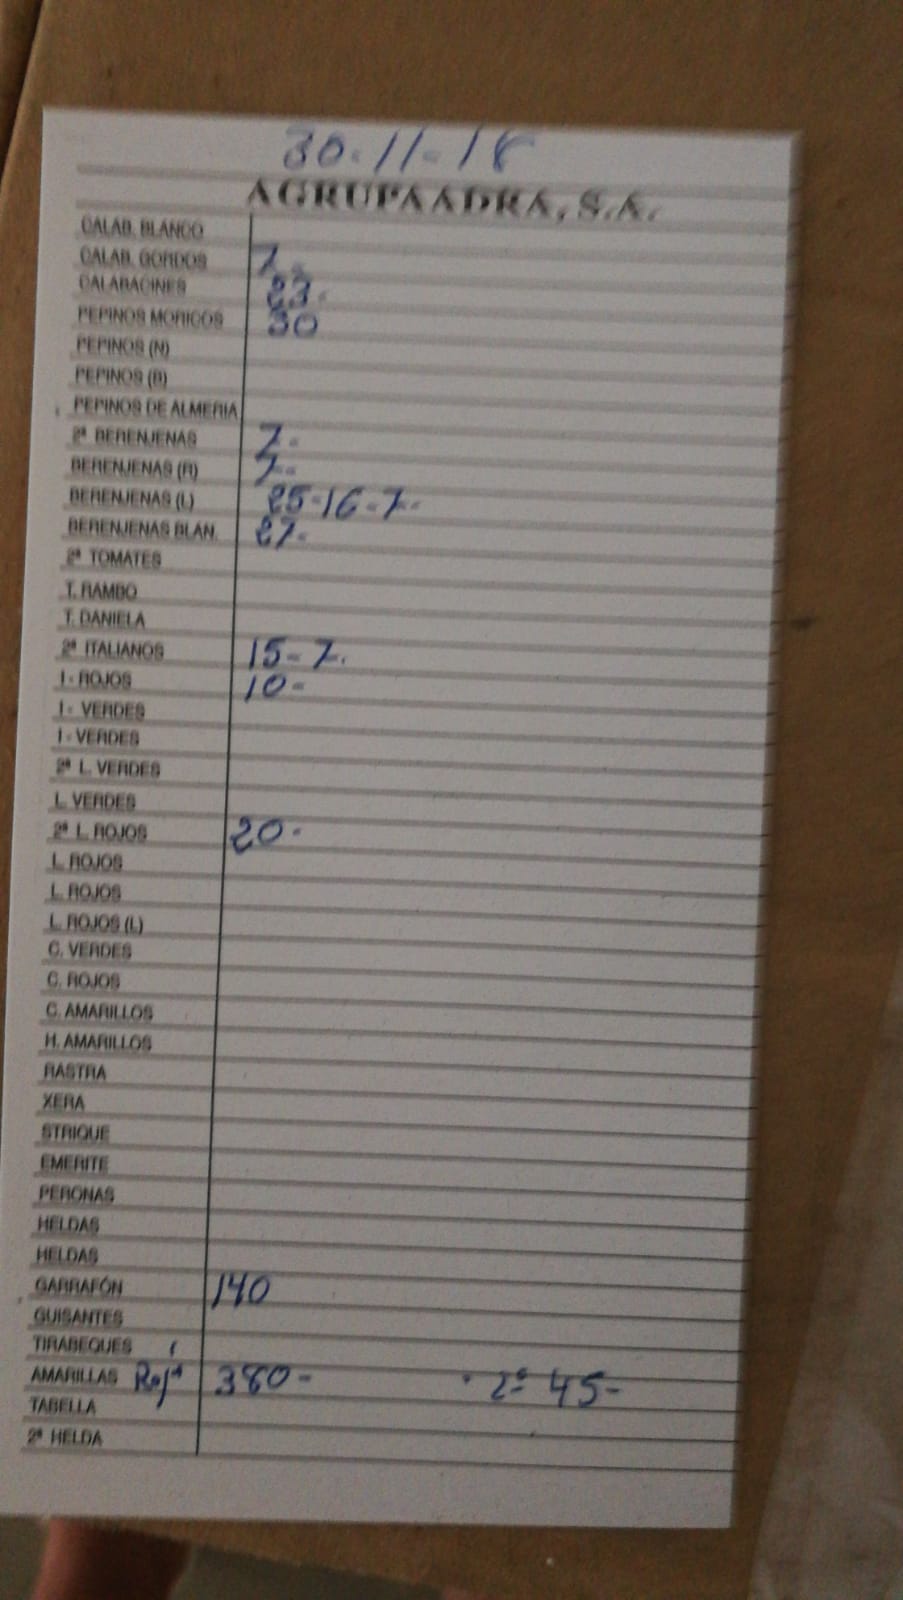 30-11-18
AGRUPAADRA, S.A.
CALAB. BLANCO
CALAB. GORDOS 7-
CALABACINES 23-
PEPINOS MORICOS 30
PEPINOS (N)
PEPINOS (B)
PEPINOS DE ALMERIA
2ª BERENJENAS 7-
BERENJENAS (R) 7-
BERENJENAS (L) 25-16-7-
BERENJENAS BLAN. 27-
2ª TOMATES
T. RAMBO
T. DANIELA
2ª ITALIANOS 15-7.
I - ROJOS 10-
I - VERDES
I - VERDES
2ª L. VERDES
L. VERDES
2ª L. ROJOS 20-
L. ROJOS
L. ROJOS
L. ROJOS (L)
C. VERDES
C. ROJOS
C. AMARILLOS
H. AMARILLOS
RASTRA
XERA
STRIQUE
EMERITE
PERONAS
HELDAS
HELDAS
GARRAFÓN 140
GUISANTES
TIRABEQUES
AMARILLAS Roja 380- 2ª 45-
TABELLA
2ª HELDA